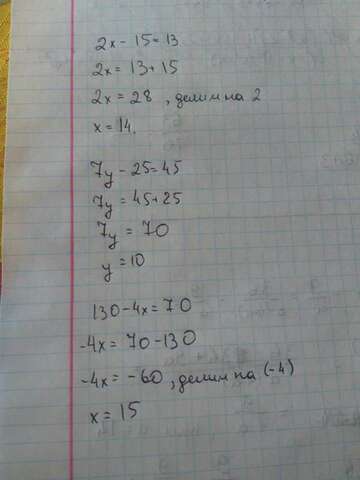 2x - 15 = 13
2x = 13 + 15
2x = 28 , делим на 2
x = 14.
7y - 25 = 45
7y = 45 + 25
7y = 70
y = 10
130 - 4x = 70
-4x = 70 - 130
-4x = -60 , делим на (-4)
x = 15